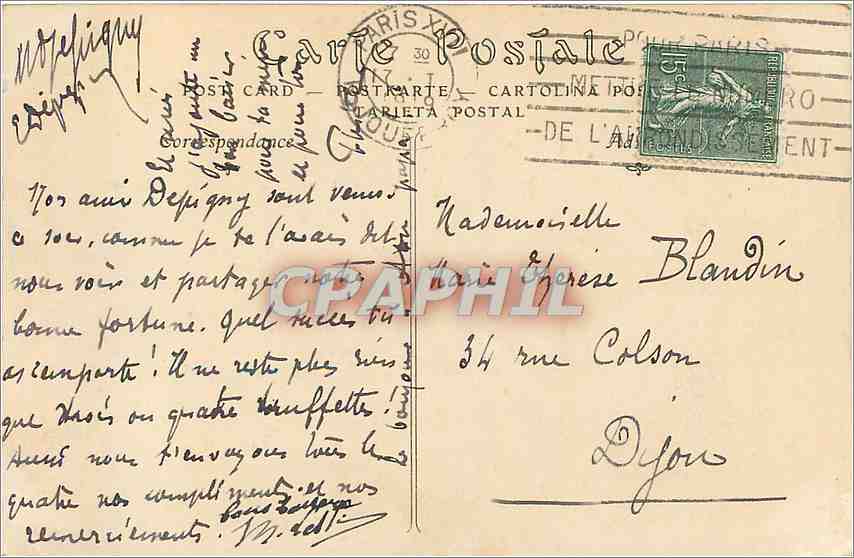 Carte Postale
POST CARD — POSTKARTE — CARTOLINA POS
TARJETA POSTAL
Correspondance
PARIS XVI
30
POUR PARIS
METT NUMERO
DE L'ARRONDISSEMENT
15c
REPUBLIQUE FRANCAISE
POSTES
Depigny
Nos amis Depigny sont venus
ce soir, comme je te l'avais dit
nous voir et partager notre
bonne fortune. Quel succès tu
as remporté! Il ne reste plus rien
que trois ou quatre truffettes!
Aussi nous t'envoyons tous les
quatre nos compliments et nos
remerciements. bons baisers
Et
j'ajoute un
bon baiser
pour
et pour toi
Mademoiselle
Marie Thérèse Blandin
34 rue Colson
Dijon
CPAPHIL